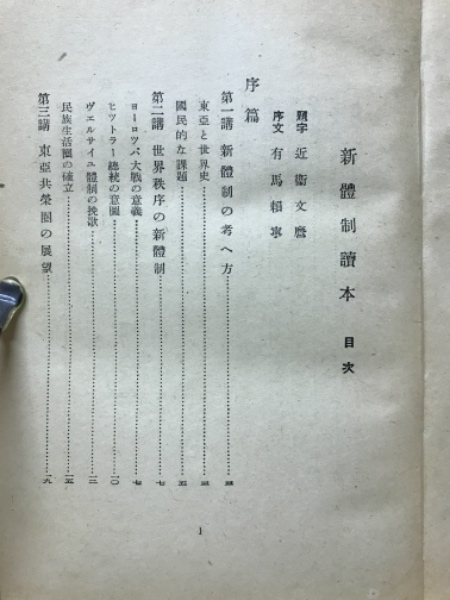 新體制讀本 目次
題字 近衞文麿
序文 有馬賴寧
序篇
第一講 新體制の考へ方
東亞と世界史
國民的な課題
第二講 世界秩序の新體制……七
ヨーロツパ大戰の意義……七
ヒツトラー總統の意圖……一〇
ヴエルサイユ體制の挽歌……一二
民族生活圈の確立……一五
第三講 東亞共榮圈の展望……一九
1